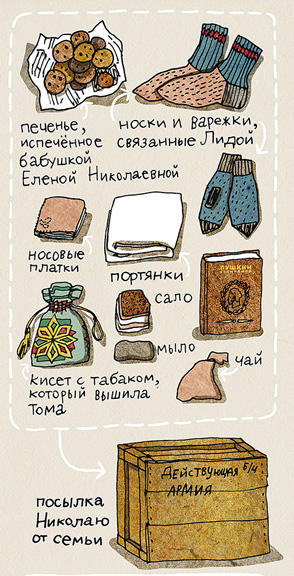 печенье,
испечённое
бабушкой
Еленой Николаевной
носки и варежки,
связанные Лидой
носовые
платки
портянки
ПУШКИН
сало
мыло
чай
кисет с табаком,
который вышила
Тома
посылка
Николаю
от семьи
ДЕЙСТВУЮЩАЯ
АРМИЯ